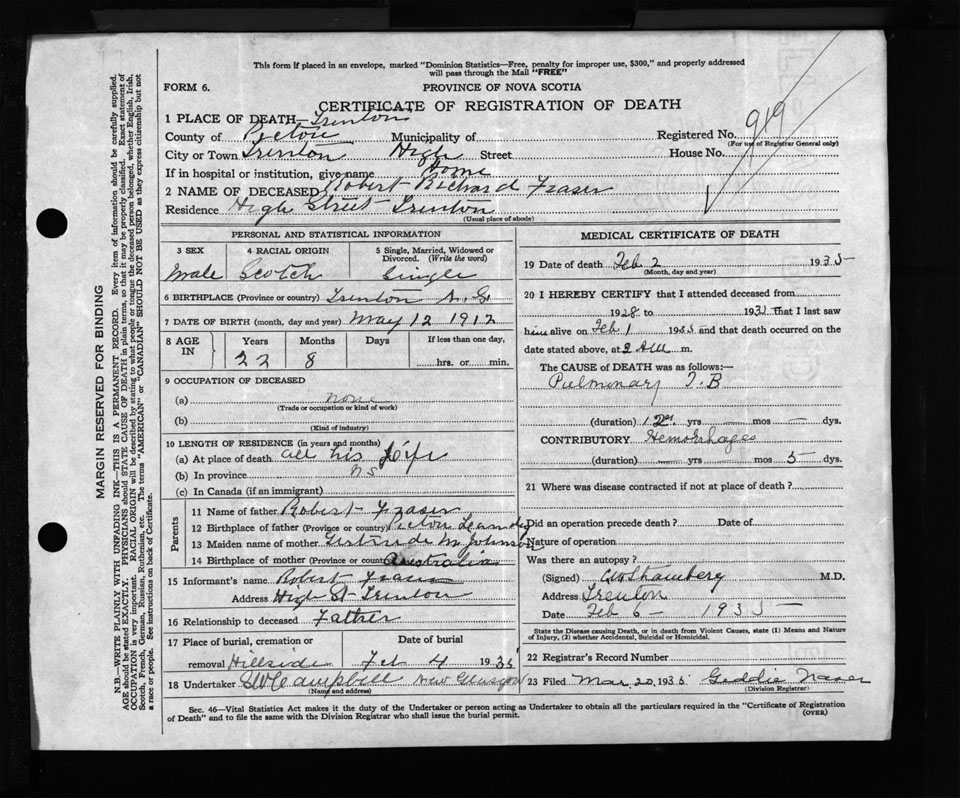 This form if placed in an envelope, marked "Dominion Statistics—Free, penalty for improper use, $300," and properly addressed
will pass through the Mail "FREE"
FORM 6.
PROVINCE OF NOVA SCOTIA
CERTIFICATE OF REGISTRATION OF DEATH
1 PLACE OF DEATH—Trenton
County of Pictou Municipality of Registered No. 919
(For use of Registrar General only)
City or Town Trenton High Street House No.
If in hospital or institution, give name Home
2 NAME OF DECEASED Robert Richard Fraser
Residence High Street Trenton
(Usual place of abode)
PERSONAL AND STATISTICAL INFORMATION
3 SEX 4 RACIAL ORIGIN 5 Single, Married, Widowed or
Divorced. (Write the word)
Male Scotch Single
6 BIRTHPLACE (Province or country) Trenton N.S.
7 DATE OF BIRTH (month, day and year) May 12 1912
8 AGE IN Years Months Days If less than one day,
22 8 hrs. or min.
9 OCCUPATION OF DECEASED
(a) none
(Trade or occupation or kind of work)
(b)
(Kind of industry)
10 LENGTH OF RESIDENCE (in years and months)
(a) At place of death all his Life
(b) In province NS
(c) In Canada (if an immigrant)
Parents
11 Name of father Robert Fraser
12 Birthplace of father (Province or country) Pictou
13 Maiden name of mother Gertrude M Johnson
14 Birthplace of mother (Province or country) Australia
15 Informant's name Robert Fraser
Address High St Trenton
16 Relationship to deceased Father
17 Place of burial, cremation or Date of burial
removal Hillside Feb 4 1935
18 Undertaker Campbell New Glasgow
(Name and address)
MEDICAL CERTIFICATE OF DEATH
19 Date of death Feb 2 1935
(Month, day and year)
20 I HEREBY CERTIFY that I attended deceased from
1928 to that I last saw
him alive on Feb 1 1935 and that death occurred on
date stated above, at 2 AM m.
The CAUSE of DEATH was as follows:—
Pulmonary T.B
(duration) yrs — mos — dys.
CONTRIBUTORY Hemorrhages
(duration) — yrs — mos 5 dys.
21 Where was disease contracted if not at place of death?
Did an operation precede death? Date of
Nature of operation
Was there an autopsy?
(Signed) M.D.
Address Trenton
Date Feb 6 - 1935
State the Disease causing Death, or in death from Violent Causes, state (1) Means and Nature
of Injury, (2) whether Accidental, Suicidal or Homicidal.
22 Registrar's Record Number
23 Filed Mar 20, 1935 Geddie Fraser
(Division Registrar)
Sec. 46—Vital Statistics Act makes it the duty of the Undertaker or person acting as Undertaker to obtain all the particulars required in the "Certificate of Registration
of Death" and to file the same with the Division Registrar who shall issue the burial permit.
(OVER)
MARGIN RESERVED FOR BINDING
N.B.—WRITE PLAINLY WITH UNFADING INK—THIS IS A PERMANENT RECORD. Every item of information should be carefully supplied.
AGE should be stated EXACTLY. PHYSICIANS should STATE CAUSE OF DEATH in plain terms, so that it may be properly classified. Exact statement of
OCCUPATION is very important. RACIAL ORIGIN will be described by stating to what people or tongue the deceased person belonged, whether English, Irish,
Scotch, French, German, Russian, Ruthenian, etc. The terms "AMERICAN" or "CANADIAN" SHOULD NOT BE USED as they express citizenship but not
a race or people. See instructions on back of Certificate.